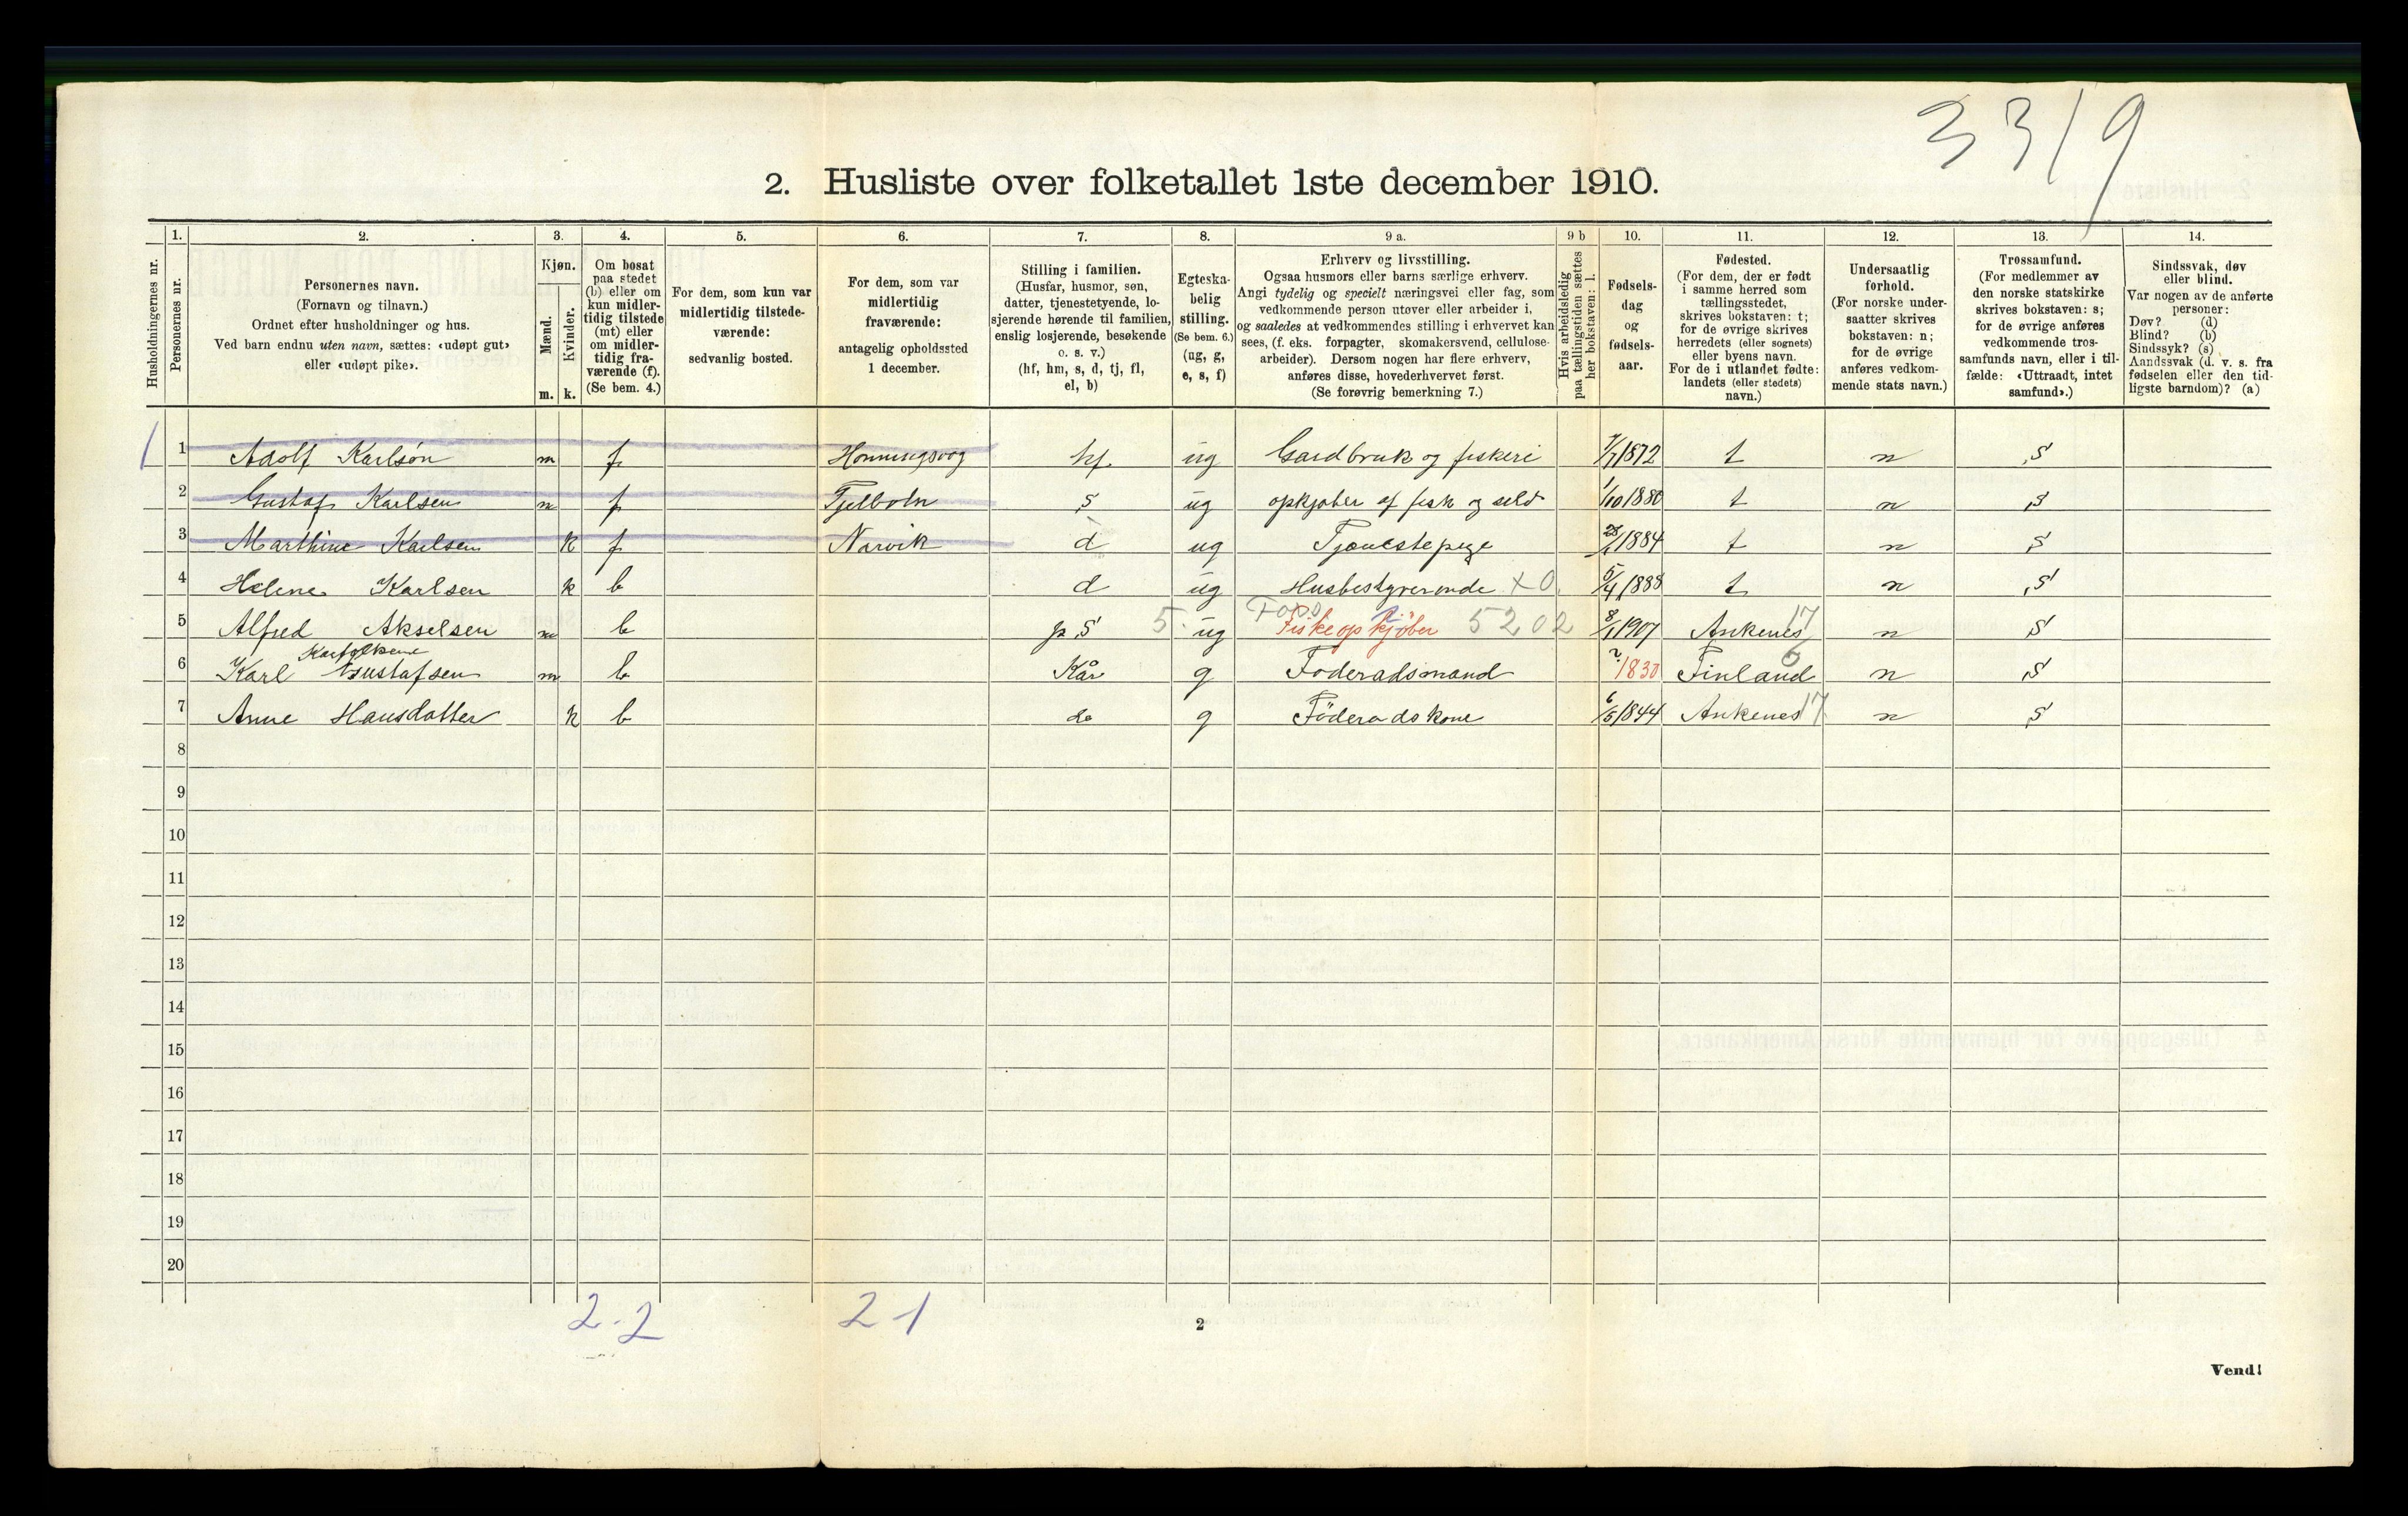 3319
2. Husliste over folketallet 1ste december 1910.
Husholdningernes nr.
1. Personernes nr.
2. Personernes navn. (Fornavn og tilnavn.) Ordnet efter husholdninger og hus. Ved barn endnu uten navn, sættes: «udøpt gut» eller «udøpt pike».
3. Kjøn. Mænd. m. Kvinder. k.
4. Om bosat paa stedet (b) eller om kun midlertidig tilstede (mt) eller om midlertidig fraværende (f). (Se bem. 4.)
5. For dem, som kun var midlertidig tilstedeværende: sedvanlig bosted.
6. For dem, som var midlertidig fraværende: antagelig opholdssted 1 december.
7. Stilling i familien. (Husfar, husmor, søn, datter, tjenestetyende, losjerende hørende til familien, enslig losjerende, besøkende o. s. v.) (hf, hm, s, d, tj, fl, el, b)
8. Egteskabelig stilling. (Se bem. 6.) (ug, g, e, s, f)
9 a. Erhverv og livsstilling. Ogsaa husmors eller barns særlige erhverv. Angi tydelig og specielt næringsvei eller fag, som vedkommende person utøver eller arbeider i, og saaledes at vedkommendes stilling i erhvervet kan sees, (f. eks. forpagter, skomakersvend, cellulosearbeider). Dersom nogen har flere erhverv, anføres disse, hovederhvervet først. (Se forøvrig bemerkning 7.)
9 b Hvis arbeidsledig paa tællingstiden sættes her bokstaven: l.
10. Fødselsdag og fødselsaar.
11. Fødested. (For dem, der er født i samme herred som tællingsstedet, skrives bokstaven: t; for de øvrige skrives herredets (eller sognets) eller byens navn. For de i utlandet fødte: landets (eller stedets) navn.)
12. Undersaatlig forhold. (For norske undersaatter skrives bokstaven: n; for de øvrige anføres vedkommende stats navn.)
13. Trossamfund. (For medlemmer av den norske statskirke skrives bokstaven: s; for de øvrige anføres vedkommende trossamfunds navn, eller i tilfælde: «Uttraadt, intet samfund».)
14. Sindssvak, døv eller blind. Var nogen av de anførte personer: Døv? (d) Blind? (b) Sindssyk? (s) Aandssvak (d. v. s. fra fødselen eller den tidligste barndom)? (a)
1 1 Adolf Karlsøn m f Honningsvog hf ug Gardbruk og fiskeri 7/7 1872 t n s
2 Gustaf Karlsen m f s ug opkjøber af fisk og sild 1/10 1880 t n s
3 Marthine Karlsen k f Narvik d ug Tjenestepige 1884 t n s
4 Helene Karlsen k b d ug Husbestyrerinde x 0. 5/4 1888 t n s
5 Alfred Akselsen m b s 5. ug Fiskeopkjøber 5202 8/1 1907 Ankenes 17 n s
6 Karl Gustafsen m b Kår g Foderadsmand ? 1830 Finland 6 n s
7 Anne Hansdatter k b do g Föderadskone 6/5 1844 Ankenes 17 n s
8
9
10
11
12
13
14
15
16
17
18
19
20
2-2 2 1
2
Vend!